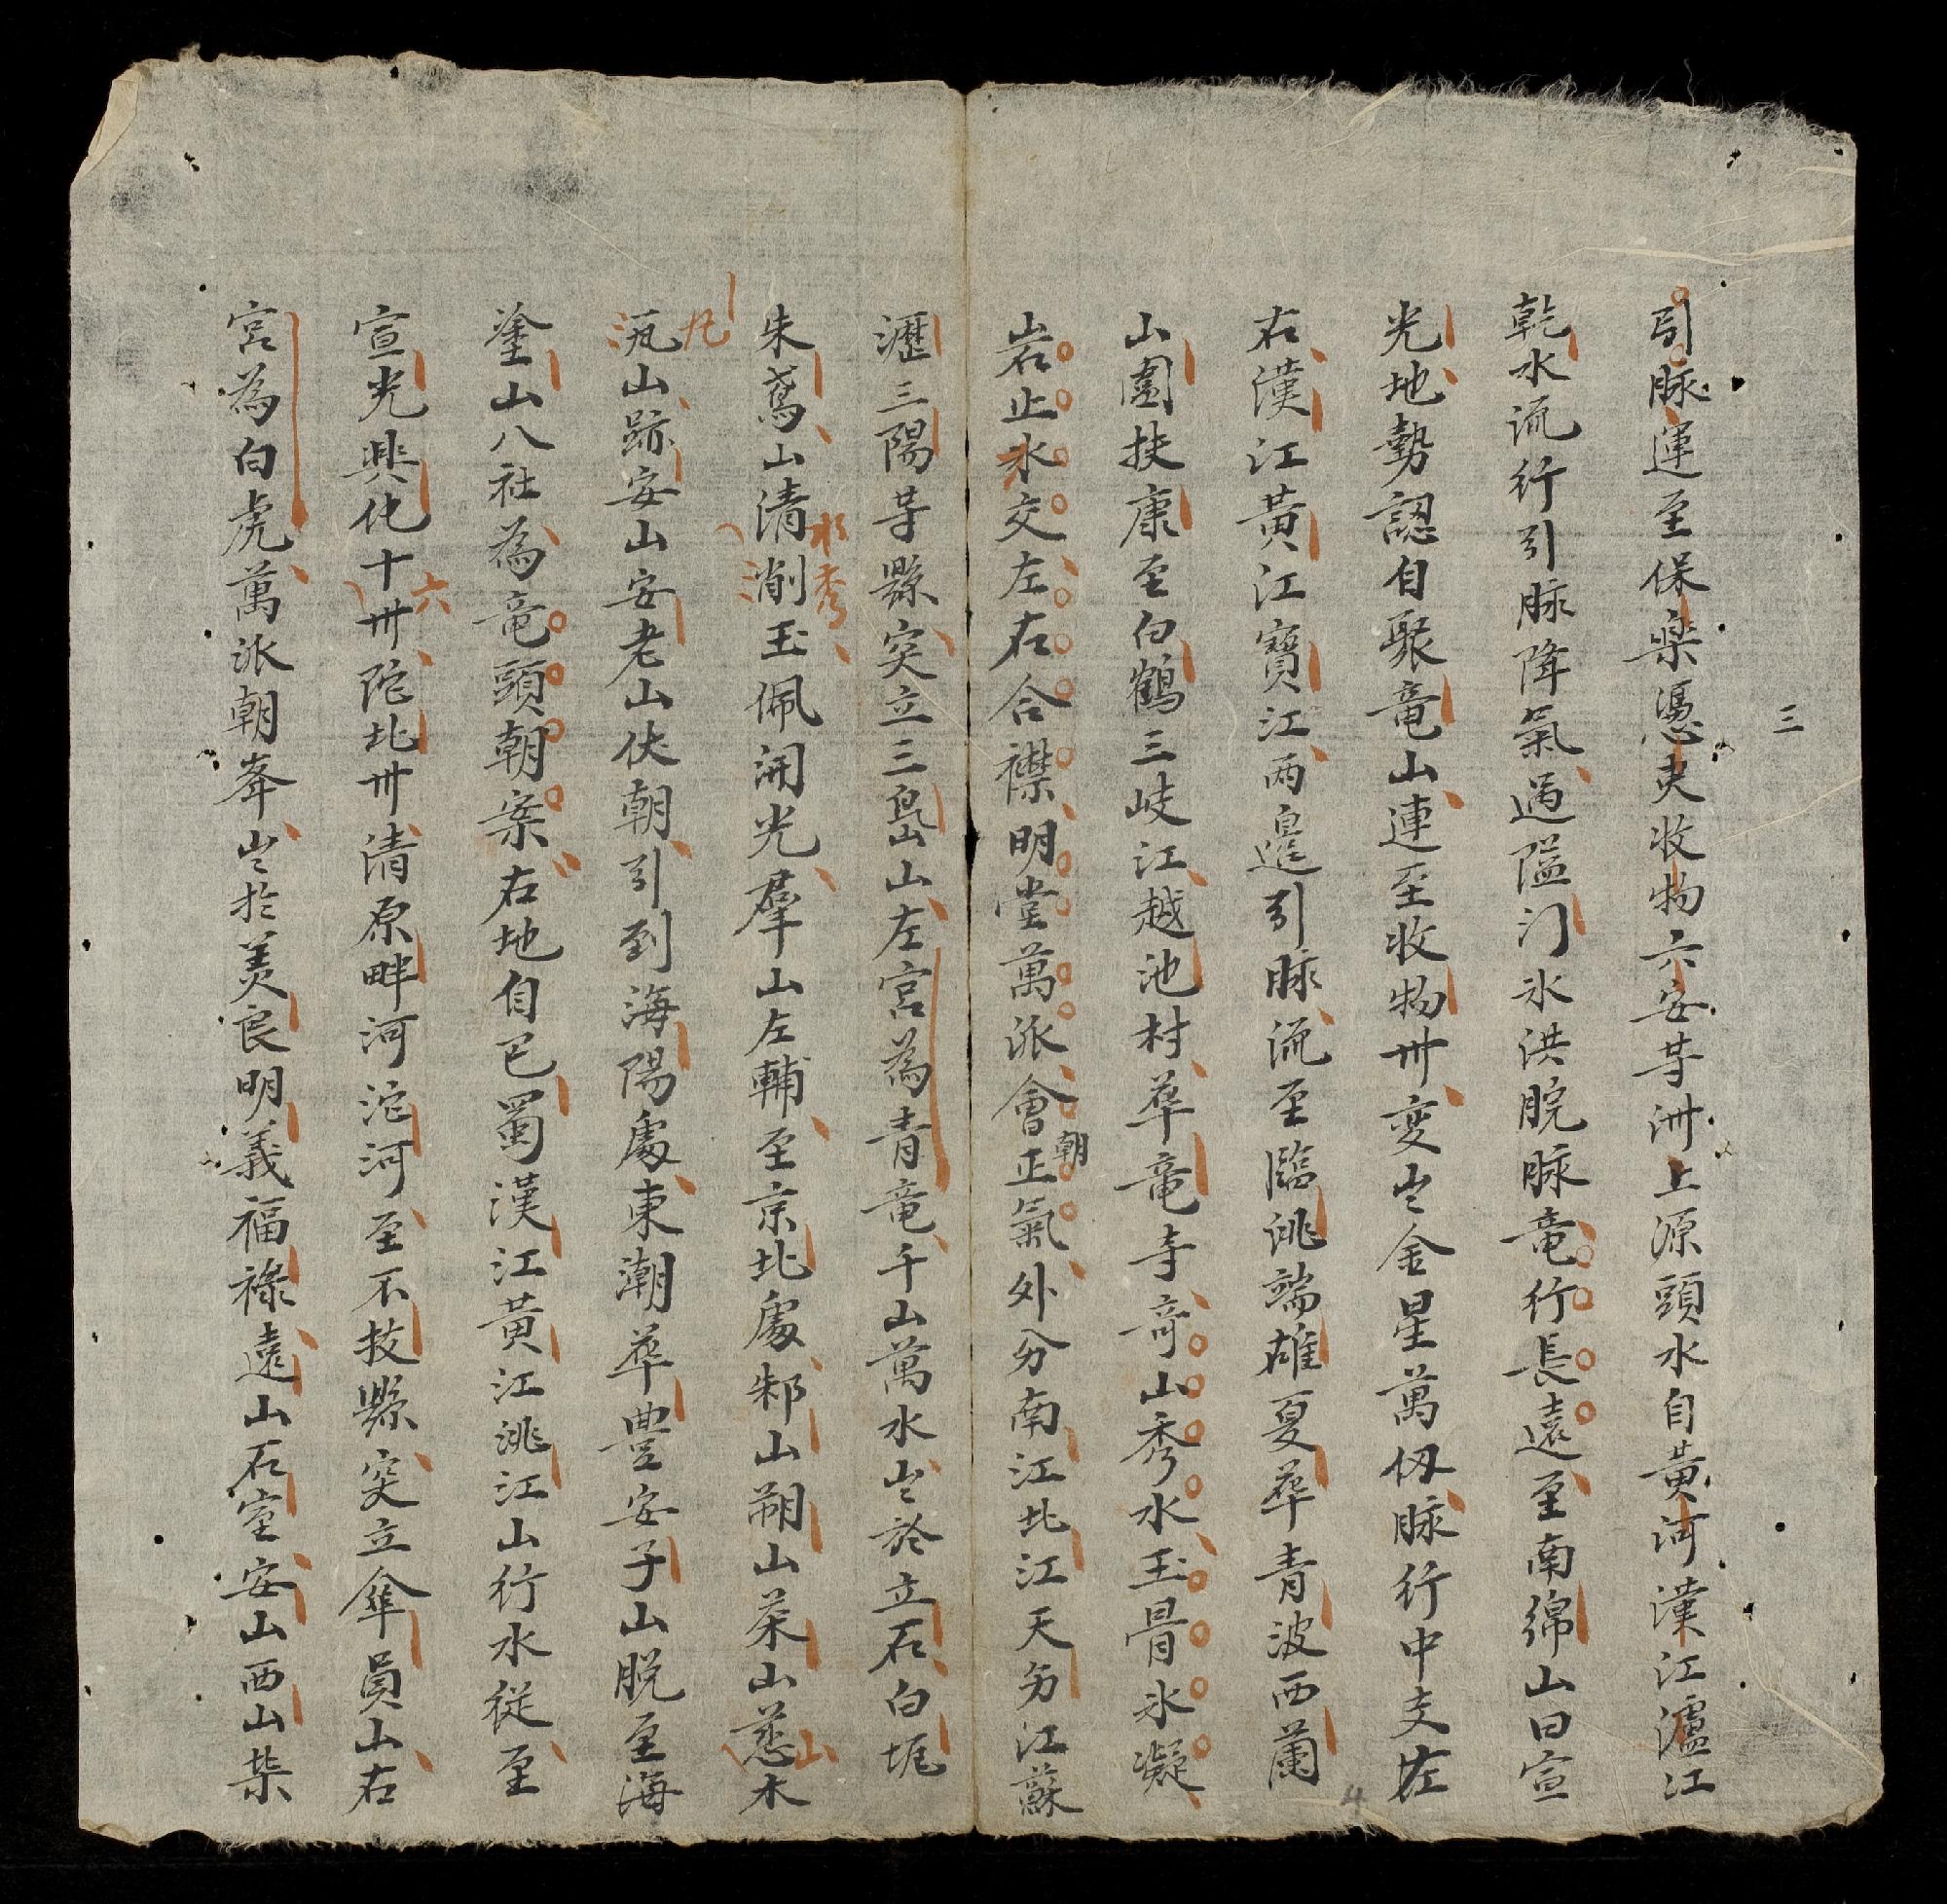 三
引脉運至保樂憑夷收物六安䓁洲上源頭水自黄河漢江瀘江
乾水流行引脉降氣過隘门氷洪脘脉竜行長遠至南綿山曰宣
光地勢認自聚竜山連至收物卅变岀金星萬仭脉行中支左
右漢江黄江寶江两邉引脉流至臨洮端雄夏華青波西蘭
山圍扶康至白鶴三岐江越池村華竜寺竒山秀水玉骨氷凝
岩止水交左右合襟明堂萬派會正氣外分南江北江天分江蘇
朝
瀝三陽䓁縣突立三島山左宮為青竜千山萬水岀於立石白坭
朱鳶山清削玉佩開光羣山左輔至京北處邾山朔山茶山慈木
水秀
山
山跡安山安老山伏朝引到海陽處東潮華豊安子山脱至海
凡
塗山八社為竜頭朝案右地自巴蜀漢江黄江洮江山行水從至
宣光興化十卅陀北卅清原畔河沱河至不拔縣突立傘員山右
六
宮為白虎萬派朝峯岀於美良明義福祿遠山石室安山西山柴
4